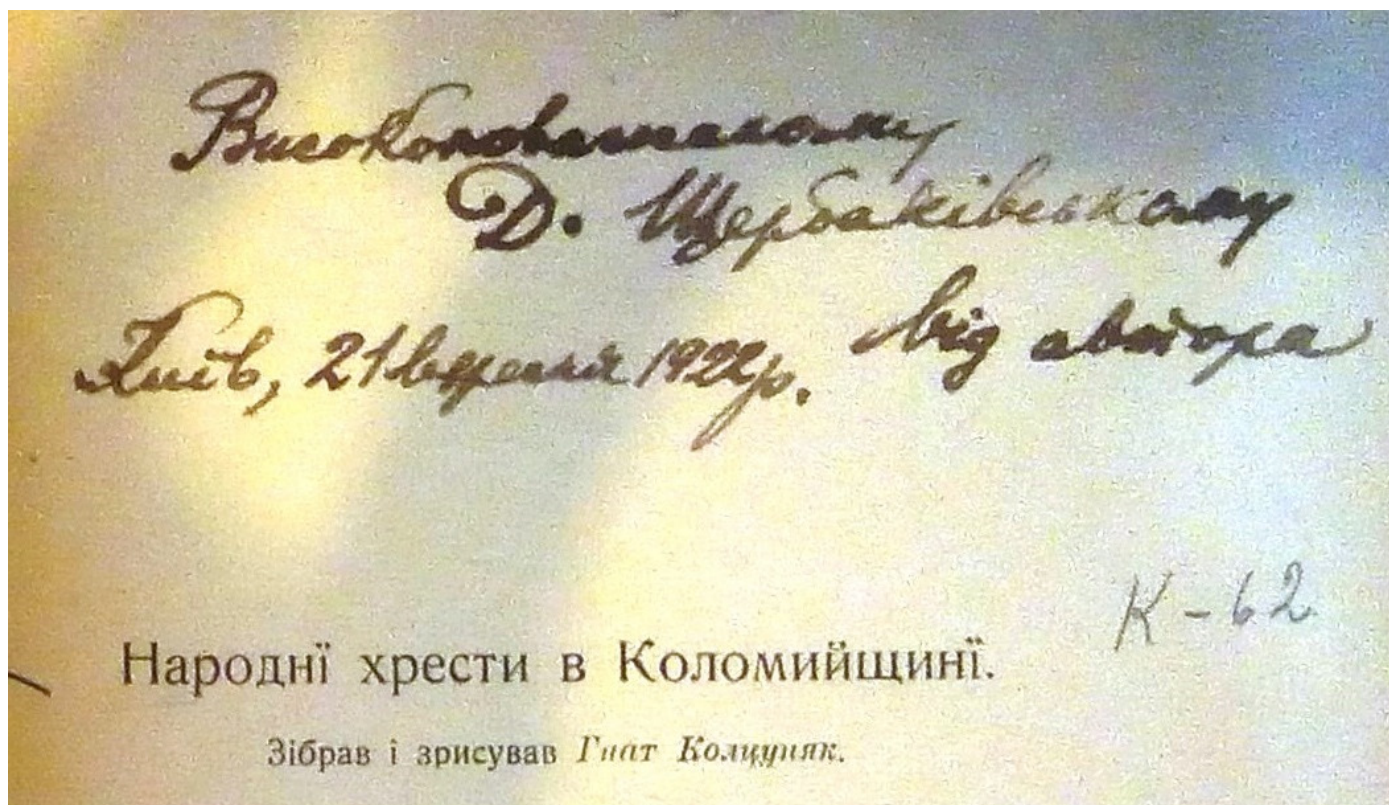 Високоповажаному
Д. Щербаківському
від автора
Київ, 21 вересня 1922 р.
К-62
Народнї хрести в Коломийщинї.
Зібрав і зрисував Гнат Колцуняк.